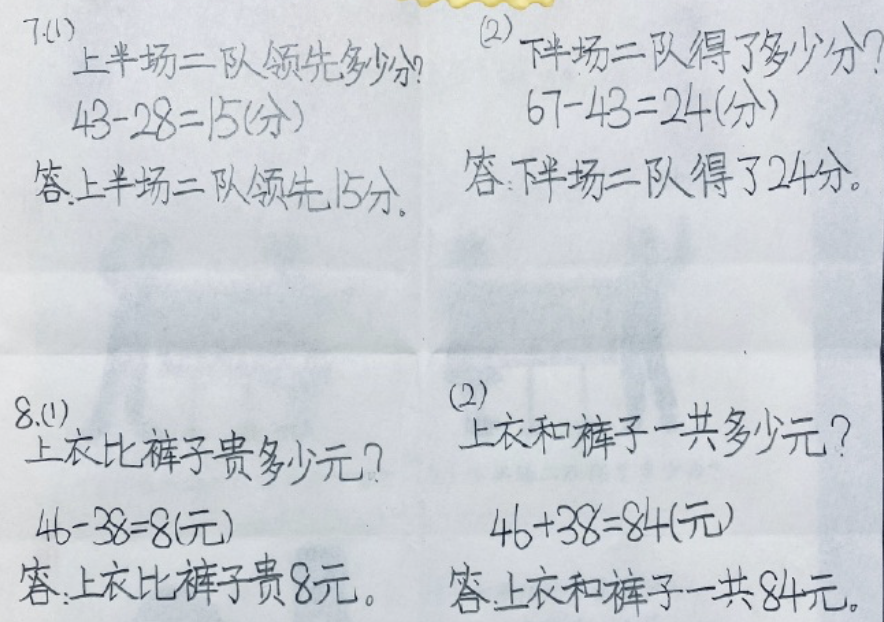 7.(1)
上半场二队领先多少分?
43-28=15(分)
答:上半场二队领先15分。
(2)
下半场二队得了多少分?
67-43=24(分)
答:下半场二队得了24分。
8.(1)
上衣比裤子贵多少元?
46-38=8(元)
答:上衣比裤子贵8元。
(2)
上衣和裤子一共多少元?
46+38=84(元)
答:上衣和裤子一共84元。